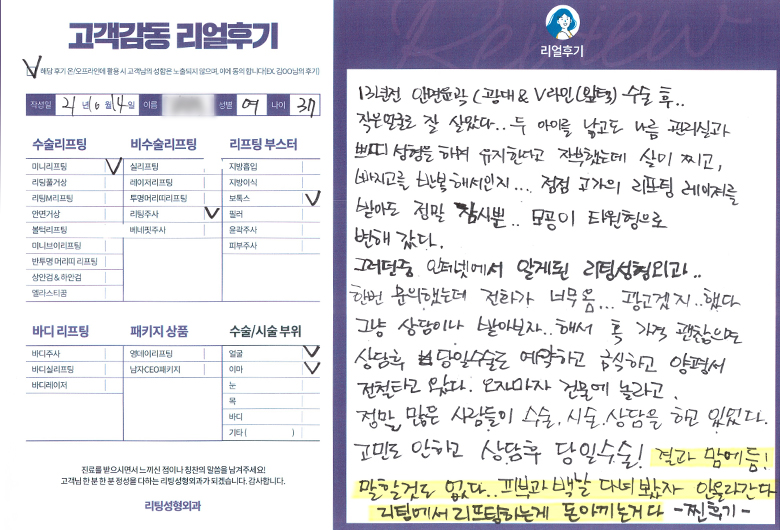 고객감동 리얼후기
해당 후기 온/오프라인에 활용 시 고객님의 성함은 노출되지 않으며, 이에 동의 합니다(EX. 김OO님의 후기)
작성일 21년 6월 14일 이름 성별 여 나이 37
수술리프팅
미니리프팅
리팅풀거상
리팅M리프팅
안면거상
볼턱리프팅
미니브이리프팅
반투명 머리띠 리프팅
상안검 & 하안검
엘라스티꿈
비수술리프팅
실리프팅
레이저리프팅
투명머리띠리프팅
리팅주사
버네핏주사
리프팅 부스터
지방흡입
지방이식
보톡스
필러
윤곽주사
피부주사
바디 리프팅
바디주사
바디실리프팅
바디레이저
패키지 상품
영데이리프팅
남자CEO패키지
수술/시술 부위
얼굴
이마
눈
목
바디
기타 ( )
진료를 받으시면서 느끼신 점이나 칭찬의 말씀을 남겨주세요!
고객님 한 분 한 분 정성을 다하는 리팅성형외과가 되겠습니다. 감사합니다.
리팅성형외과
Review
리얼후기
13년전 안면윤곽 (광대 & V라인(앞턱) 수술 후..
작은얼굴로 잘 살았다.. 두 아이를 낳고도 나름 관리실과
쁘띠 성형을 하며 유지한다고 자부했는데 살이 찌고,
빠지고를 반복해서인지... 점점 고가의 리프팅 레이저를
받아도 정말 잠시뿐.. 모공이 타원형으로
변해 갔다.
그러던중 인터넷에서 알게된 리팅성형외과..
한번 문의했는데 전화가 너무옴... 광고겠지..했다
그냥 상담이나 받아보자..해서 혹 가격 괜찮으면
상담후 당일수술로 예약하고 금식하고 양평서
전철타고 왔다. 오자마자 건물에 놀라고.
정말 많은 사람들이 수술,시술,상담을 하고 있었다.
고민도 안하고 상담후 당일수술! 결과 맘에듬!
말할것도 없다.. 피부과 백날 다녀봤자 안올라간다
리팅에서 리프팅하는게 돈아끼는거다 -찐후기-